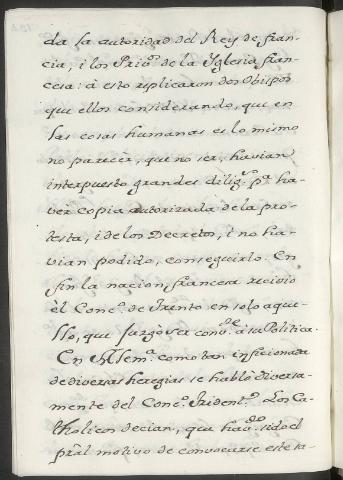 da la autoridad del Rey de fran-
cia, i los Priv.º de la Iglesia fran-
cesa: à esto replicaron dos Obispos
que ellos considerando, que en
las cosas humanas es lo mismo
no parecèr, que no ser, havian
interpuesto grandes dilig.s p.a ha-
vèr copia autorizada de la pro-
testa, i de los Decretos, i no ha-
vian podido, conseguirlo. En
fin la nacion, francesa recivio
èl Conc.º de Trento en solo aque-
llo, que juzgò ser conv.te à su Politica.
En Alem.a como tan inficionada
de diversas heregias se hablò diversa-
mente del Conc.º Trident.º Los Ca-
tholicos decian, que hav.do sido el
pràl motivo de convocarse este sa-